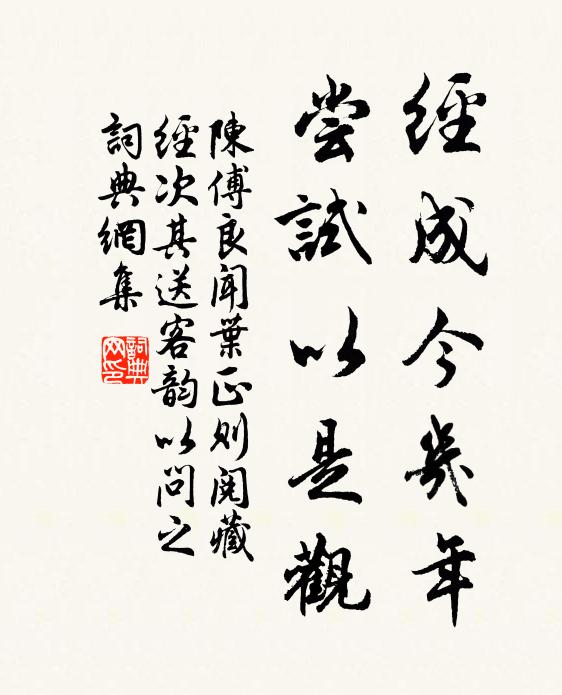 經成今幾年
嘗試以是觀
陳傅良聞葉正則閱藏
經次其送客韵以問之
詞典網集
詞典網印